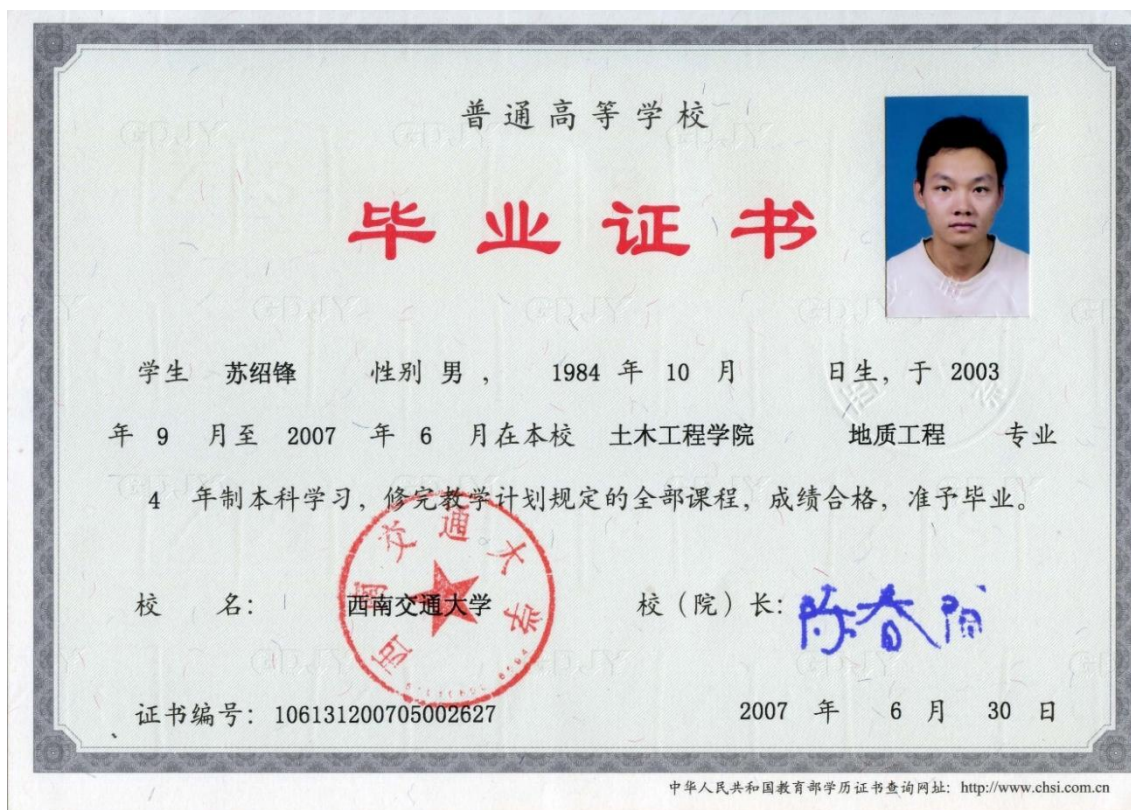 普通高等学校
毕业证书
学生 苏绍锋 性别 男 ， 1984 年 10 月 日生，于 2003
年 9 月至 2007 年 6 月在本校 土木工程学院 地质工程 专业
4 年制本科学习，修完教学计划规定的全部课程，成绩合格，准予毕业。
校 名： 西南交通大学 校（院）长：陈春阳
西南交通大学
证书编号：106131200705002627 2007 年 6 月 30 日
中华人民共和国教育部学历证书查询网址：http://www.chsi.com.cn
GDJY